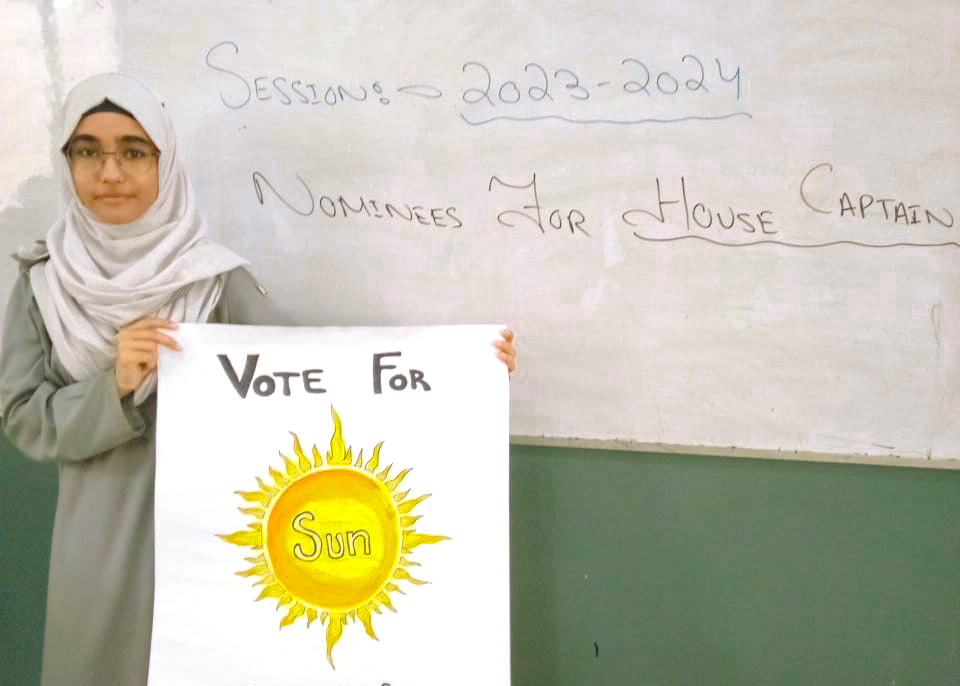 SESSION:- 2023-2024
NOMINEES FOR HOUSE CAPTAIN
VOTE FOR
Sun